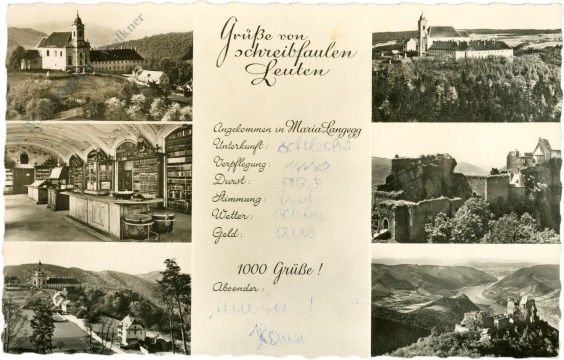 Grüße von
schreibfaulen
Leuten
Angekommen in Maria Langegg
Unterkunft: schlecht
Verpflegung:
Durst: groß
Stimmung: gut
Wetter: schön
Geld: aus
1000 Grüße!
Absender: